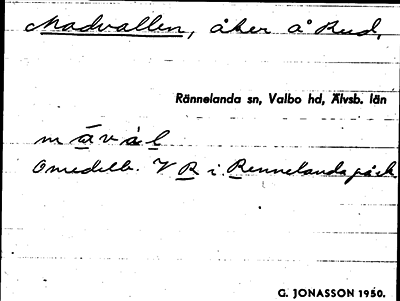 Madvallen, åker å Rud,
Rännelanda sn, Valbo hd, Älvsb. län
m a v a l
Omedelb. V R i Rennelanda
G. JONASSON 1950.